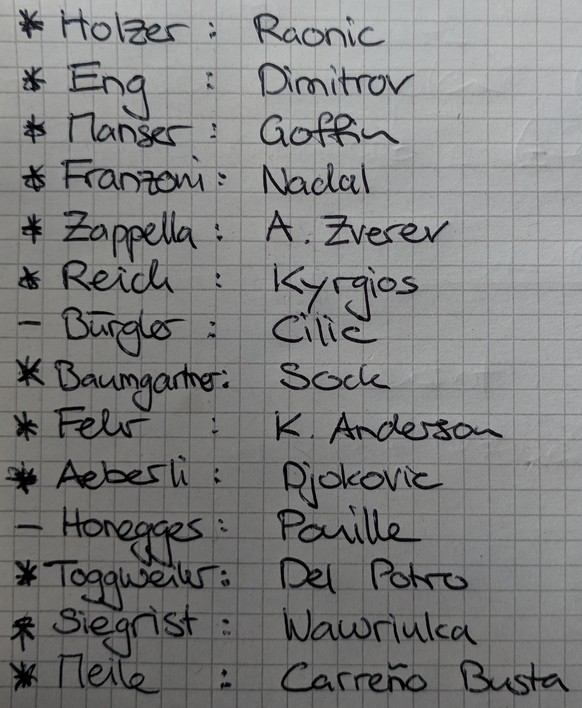 * Holzer : Raonic
* Eng : Dimitrov
* Manser : Goffin
* Franzoni : Nadal
* Zappella : A. Zverev
* Reich : Kyrgios
- Bürgler : Cilic
* Baumgartner : Sock
* Fehr : K. Anderson
* Aeberli : Djokovic
- Honegger : Pouille
* Toggweiler : Del Potro
* Siegrist : Wawrinka
* Meile : Carreño Busta